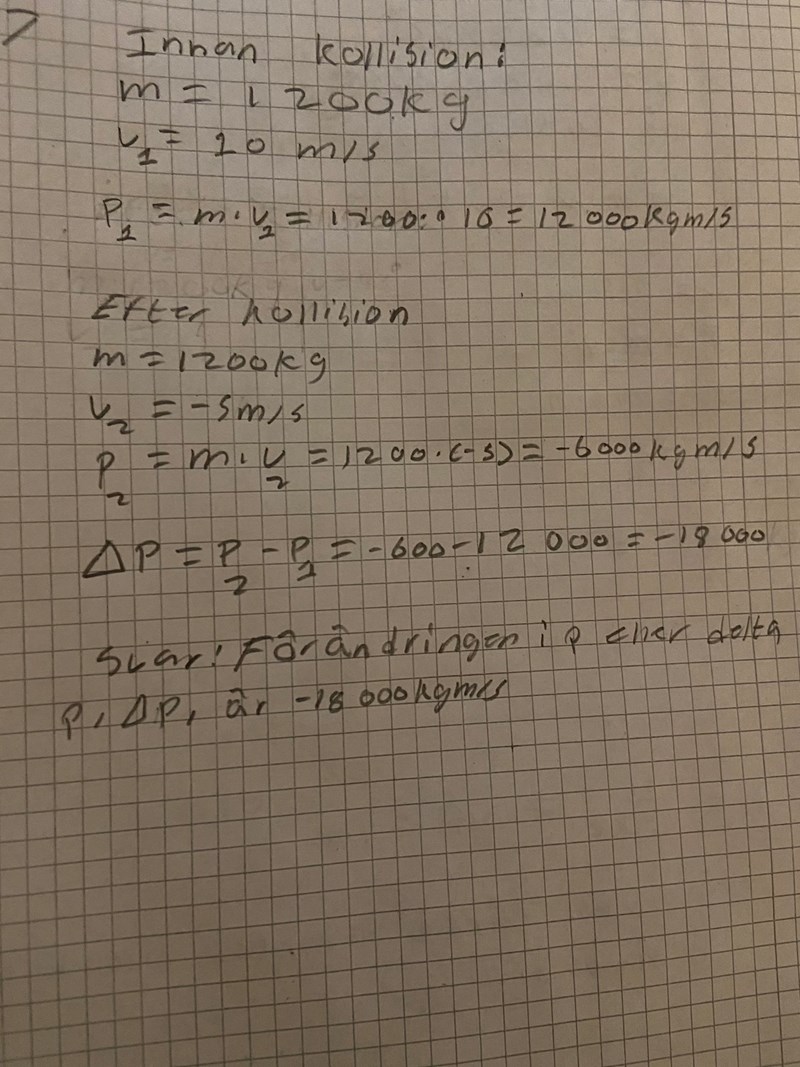 Innan kollision:
m = 1 200kg
v₁ = 10 m/s
P₁ = m·v₂ = 1200·10 = 12 000kgm/s
Efter kollision
m = 1200kg
v₂ = -5m/s
p₂ = m·v₂ = 1200·(-5) = -6000kgm/s
ΔP = P₂ - P₁ = -600-12 000 = -18 000
Svar: Förändringen i p eller delta
p, ΔP, är -18 000kgm/s